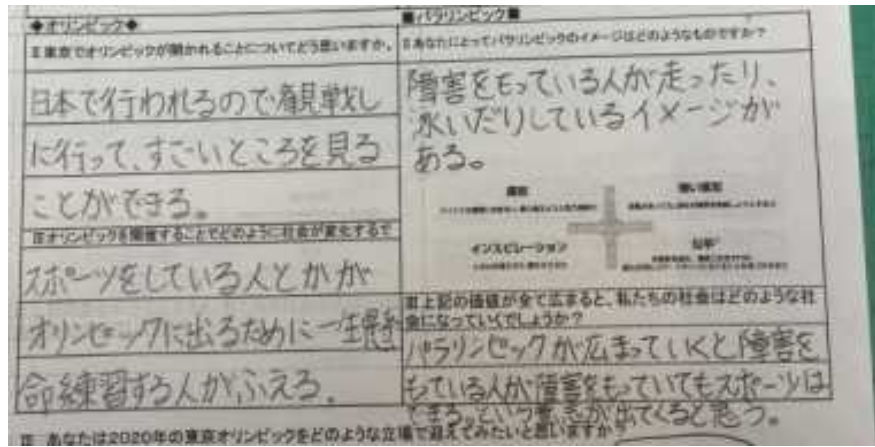 ◆オリンピック◆
Ⅱ東京でオリンピックが開かれることについてどう思いますか。
日本で行われるので観戦し
に行って、すごいところを見る
ことができる。
Ⅲオリンピックを開催することでどのように社会が変化するで
スポーツをしている人とかが
オリンピックに出るために一生懸
命練習する人がふえる。
■パラリンピック■
Ⅱあなたにとってパラリンピックのイメージはどのようなものですか?
障害をもっている人が走ったり、
泳いだりしているイメージが
ある。
勇気
強い意志
インスピレーション
公平
Ⅲ上記の価値が全て広まると、私たちの社会はどのような社
会になっていくでしょうか?
パラリンピックが広まっていくと障害を
もっている人が障害をもっていてもスポーツは
できるという意志が出てくると思う。
Ⅲ あなたは2020年の東京オリンピックをどのような立場で迎えてみたいと思いますか